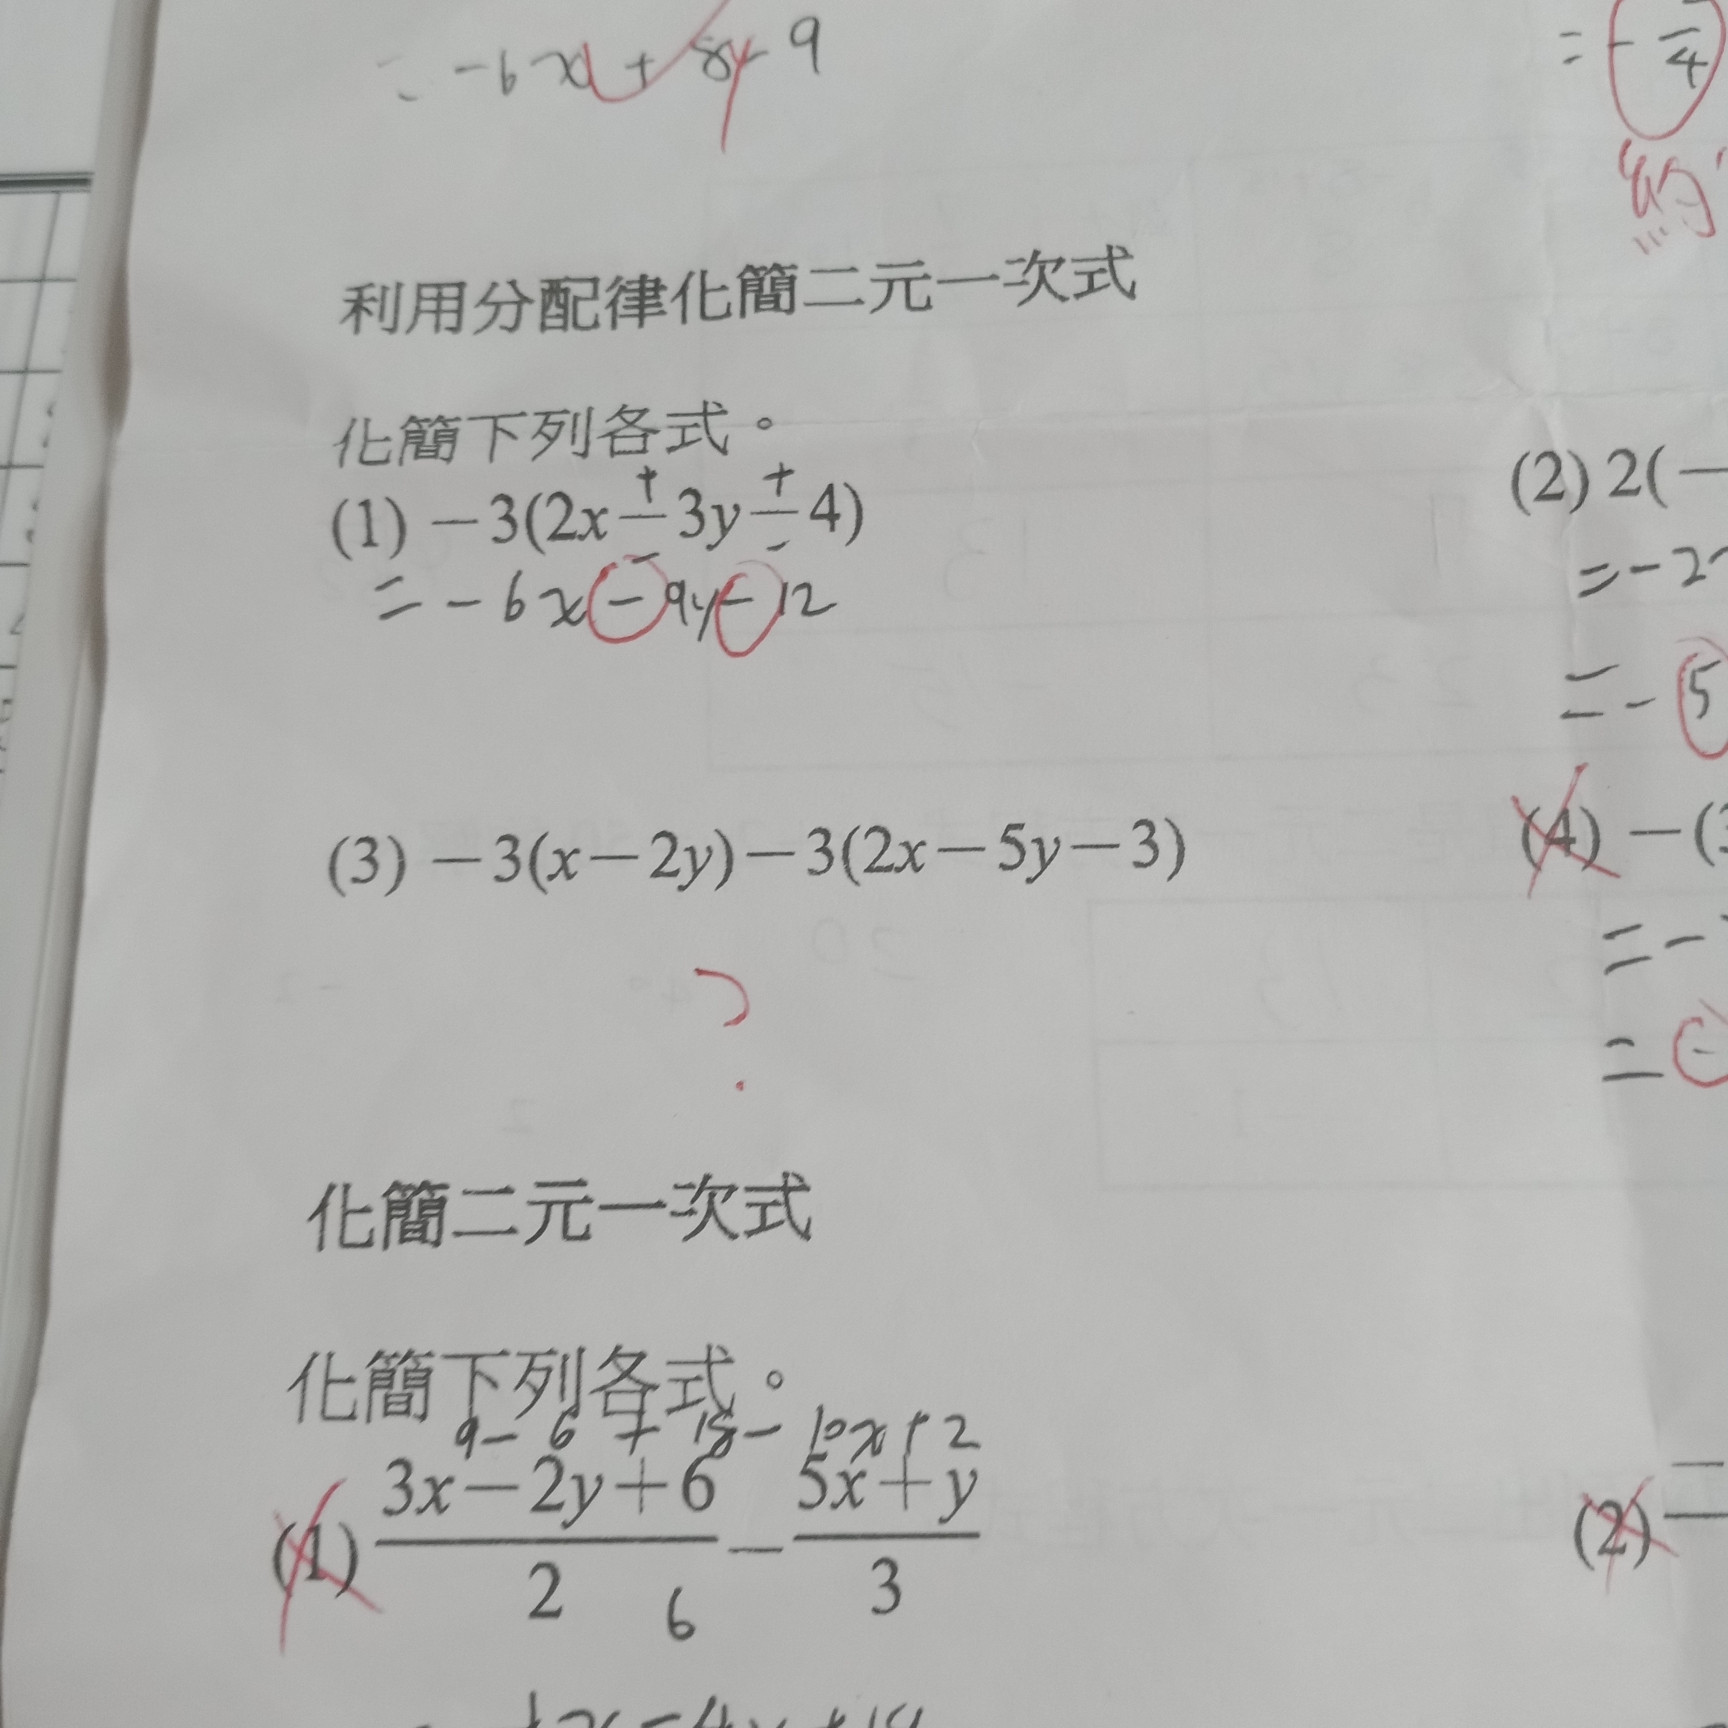 = -6x + 8y - 9
= - 4
約
利用分配律化簡二元一次式
化簡下列各式。
+ +
(1) －3(2x－3y－4)
- -
= -6x - 9y - 12
(2) 2(－
= -2
= - 5
(3) －3(x－2y)－3(2x－5y－3)
(4) －(
= -
= -
?
化簡二元一次式
化簡下列各式。
9 - 6 + 18 - 10x + 2
(1) 3x－2y+6 / 2 － 5x+y / 3
6
(2)